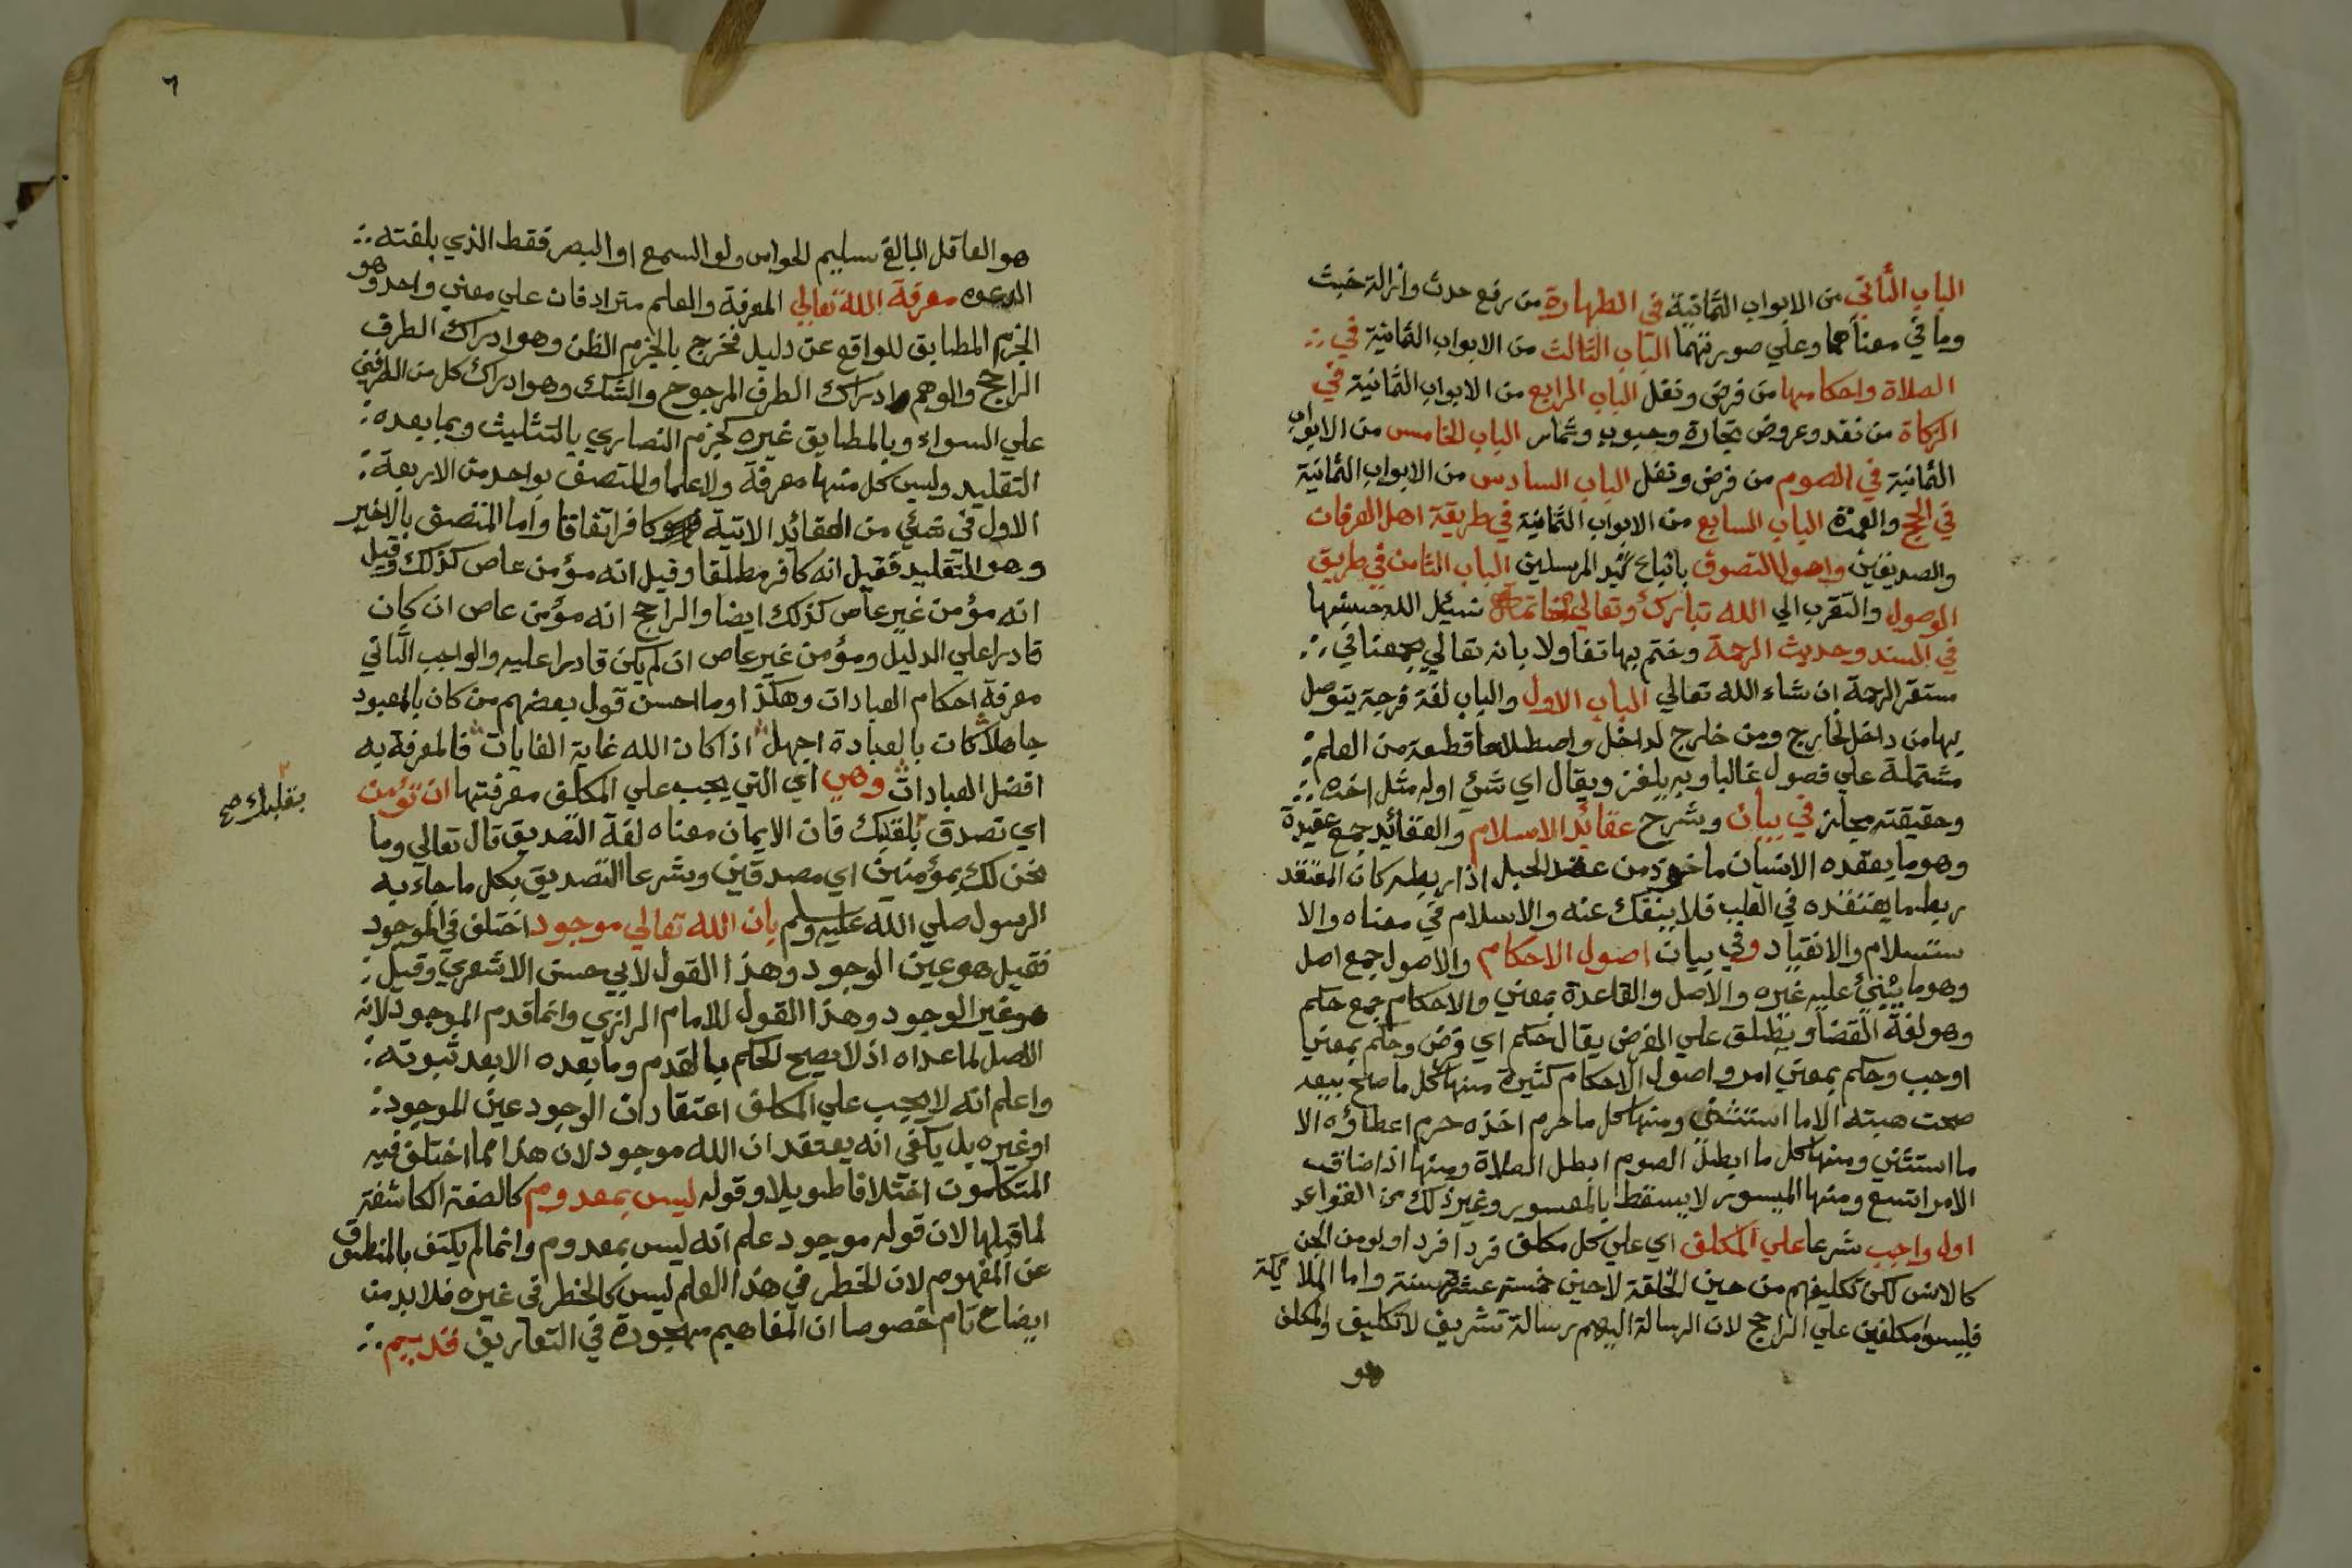 الباب الثاني من الابواب الثمانية في الطهارة من رفع حدث وازالة خبث
وما في معناهما وعلي صورتهما الباب الثالث من الابواب الثمانية في
الصلاة واحكامها من فرض ونفل الباب الرابع من الابواب الثمانية في
الزكاة من نقد وعروض تجارة وحبوب وثمار الباب الخامس من الابواب
الثمانية في الصوم من فرض ونفل الباب السادس من الابواب الثمانية
في الحج والعمرة الباب السابع من الابواب الثمانية في طريقة اهل العرفان
والصديقين واصول التصوف باتباع سيد المرسلين الباب الثامن في طريق
الوصول والتقرب الي الله تبارك وتعالي خاتمة نسئل الله حسنها
في السند وحديث الرحمة وختم بها تفاولا بانه تعالي يجمعنا في
مستقر الرحمة ان شاء الله تعالي الباب الاول والباب لغة فرجة يتوصل
بها من داخل لخارج ومن خارج لداخل واصطلاحا قطعة من العلم
مشتملة علي فصول غالبا وبه يلغز ويقال اي شئ اوله مثل اخره
وحقيقته مجاز في بيان وشرح عقائد الاسلام والعقائد جمع عقيدة
وهو ما يعقده الانسان ماخوذ من عقد الحبل اذا ربطه كان المعتقد
ربط ما يعتقده في القلب فلا ينفك عنه والاسلام في معناه والا
ستسلام والانقياد وفي بيان اصول الاحكام والاصول جمع اصل
وهو ما يبني عليه غيره والاصل والقاعدة بمعني والاحكام جمع حكم
وهو لغة القضا ويطلق علي الفرض يقال حكم اي فرض وحكم بمعني
اوجب وحكم بمعني امر واصول الاحكام كثيرة منها كل ما صح بيعه
صحت هبته الا ما استثني ومنها كل ما حرم اخذه حرم اعطاؤه الا
ما استثني ومنها كل ما ابطل الصوم ابطل الصلاة ومنها اذا ضاق
الامر اتسع ومنها الميسور لا يسقط بالمعسور وغير ذلك من القواعد
اول واجب شرعا علي المكلف اي علي كل مكلف فردا فردا ولو من الجن
كالانس لكن تكليفهم من حين الخلقة لا حين خمسة عشر سنة واما الملائكة
فليسوا مكلفين علي الراجح لان الرسالة اليهم رسالة تشريف لا تكليف والمكلف
هو
٦
هو العاقل البالغ سليم الحواس ولو السمع او البصر فقط الذي بلغته
الدعوه معرفة الله تعالي المعرفة والعلم مترادفان علي معني واحد وهو
الجزم المطابق للواقع عن دليل فخرج بالجزم الظن وهو ادراك الطرف
الراجح والوهم ادراك الطرف المرجوح والشك وهو ادراك كل من الطرفين
علي السواء وبالمطابق غيره كجزم النصاري بالتثليث وبما بعده
التقليد وليس كل منها معرفة ولا علما والمتصف بواحد من الاربعة
الاول في شئي من العقائد الاتية فهو كافر اتفاقا واما المتصف بالاخير
وهو التقليد فقيل انه كافر مطلقا وقيل انه مؤمن عاص كذلك وقيل
انه مؤمن غير عاص كذلك ايضا والراجح انه مؤمن عاص ان كان
قادرا علي الدليل ومؤمن غير عاص ان لم يكن قادرا عليه والواجب الثاني
معرفة احكام العبادات وهكذا وما احسن قول بعضهم من كان بالمعبود
جاهلا كان بالعبادة اجهل اذا كان الله غاية الغايات فالمعرفة به
افضل العبادات وهي اي التي يجب علي المكلف معرفتها ان تؤمن
بقلبك صح
اي تصدق بلقبك فان الايمان معناه لغة التصديق قال تعالي وما
نحن لك بمؤمنين اي مصدقين وشرعا التصديق بكل ما جاء به
الرسول صلي الله عليه وسلم بان الله تعالي موجود اختلف في الموجود
فقيل هو عين الوجود وهذا القول لابي حسن الاشعري وقيل
هو غير الوجود وهذا القول للامام الرازي وانما قدم الموجود لانه
الاصل لما عداه اذ لا يصح الحكم بالقدم وما بعده الا بعد ثبوته
واعلم انه لا يجب علي المكلف اعتقاد ان الوجود عين الموجود
او غيره بل يكفي انه يعتقد ان الله موجود لان هذا مما اختلف فيه
المتكلمون اختلافا طويلا وقوله ليس بمعدوم كالصفة الكاشفة
لما قبلها لان قوله موجود علم انه ليس بمعدوم وانما لم يكتف بالمنطوق
عن المفهوم لان الخطر في هذا العلم ليس كالخطر في غيره فلا بد من
ايضاح تام خصوصا ان المفاهيم مهجورة في التعاريف قديم